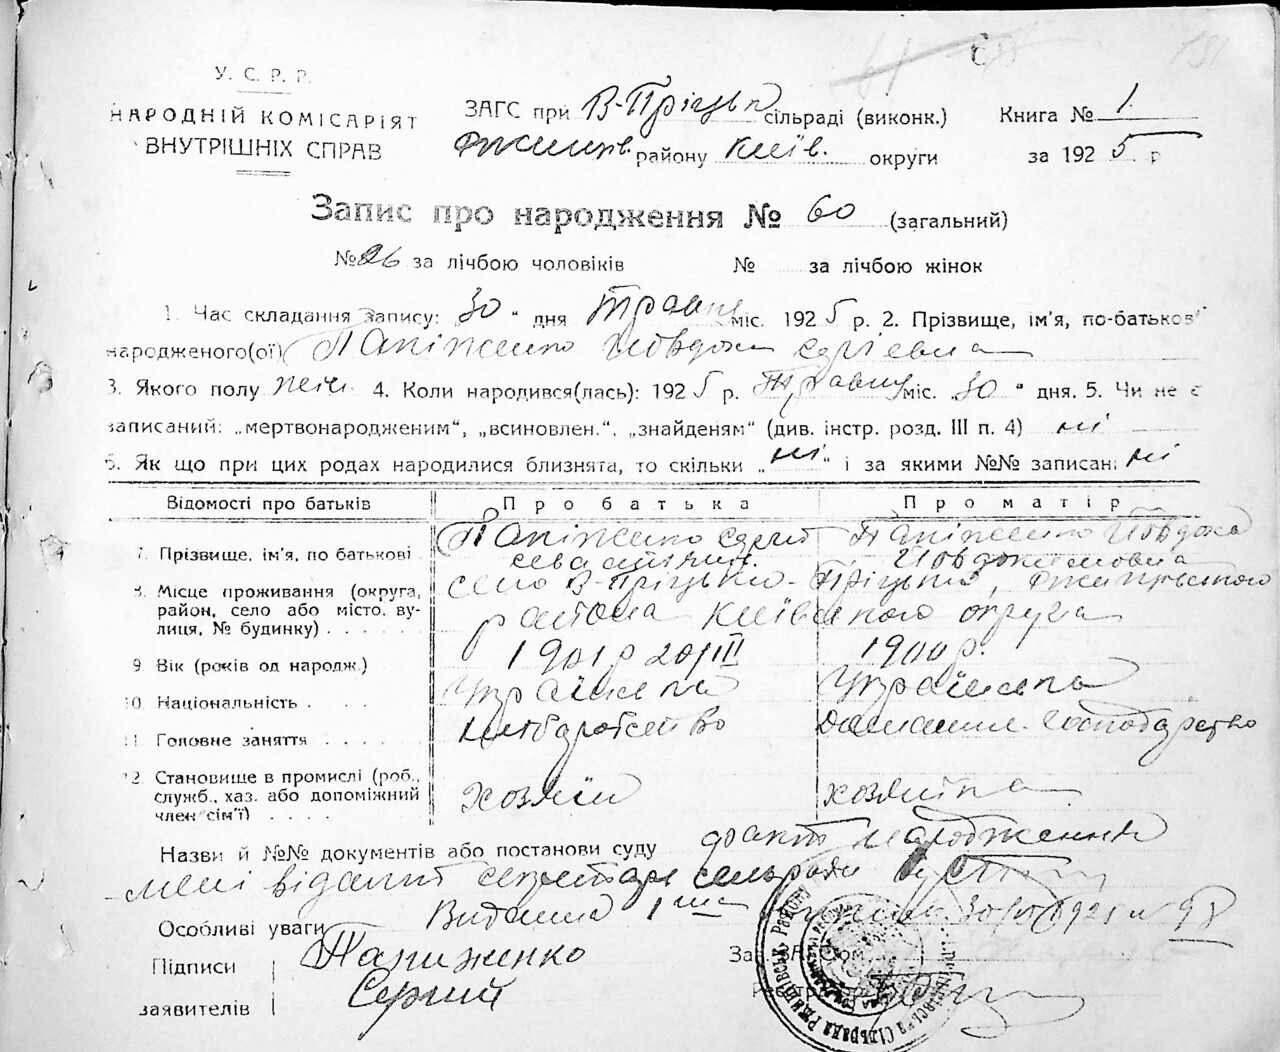 У. С. Р. Р.
НАРОДНІЙ КОМІСАРІЯТ
ВНУТРІШНІХ СПРАВ
ЗАГС при В-Пріцьк сільраді (виконк.) Книга № 1
району Київ. округи за 1925 р
Запис про народження № 60 (загальний)
№ 26 за лічбою чоловіків № за лічбою жінок
1. Час складання запису: „30“ дня Травня міс. 1925 р. 2. Прізвище, ім'я, по-батькові
народженого(ої) Папіженко Йовдоха Сергієвна
3. Якого полу жін. 4. Коли народився(лась): 1925 р. Травня міс. „30“ дня. 5. Чи не є
записаний: „мертвонародженим“, „всиновлен.“, „знайденям“ (див. інстр. розд. III п. 4) ні
6. Як що при цих родах народилися близнята, то скільки „ні“ і за якими №№ записані ні
Відомості про батьків Про батька Про матір
7. Прізвище, ім'я, по батькові Папіженко Сергій Папіженко Йовдоха
8. Місце проживання (округа, село В-Пріцьки Пріцьки,
район, село або місто, ву- района Київського округа
лиця, № будинку) . . . . .
9. Вік (років од народж.) 1901 р 20/III 1900 р.
10. Національність . . . Українська Українська
11. Головне заняття . . . . . хліборобство Домашнє господарство
12. Становище в промислі (роб., хозяїн хозяйка
служб., хаз. або допоміжний
член сім'ї) . . . .
Назви й №№ документів або постанови суду факт народження
мені відомий секретарь сельради
Особливі уваги Видана
Підписи Папиженко
заявителів Сергий